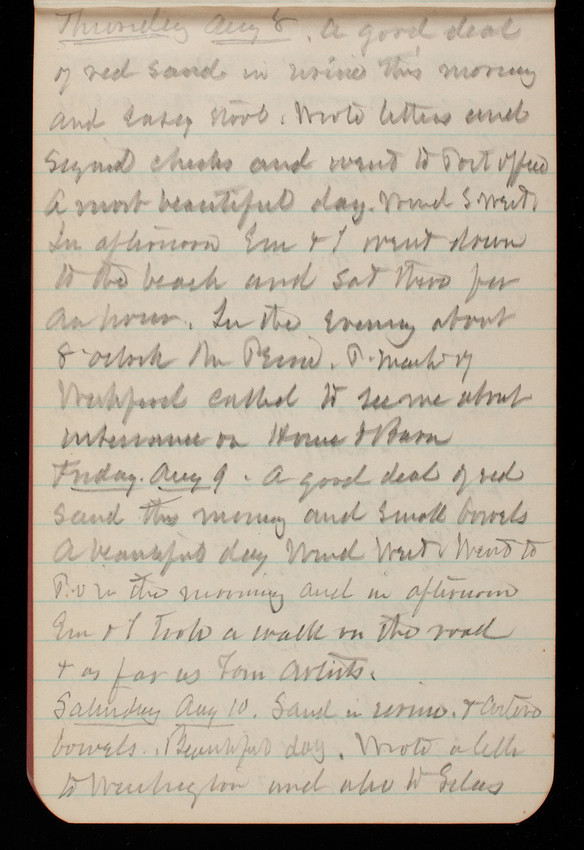 Thursday Aug 8. A good deal
of red sand in urine this morning
and easy stool. Wrote letters and
signed checks and went to Post office
A most beautiful day. Wind S West.
In afternoon Em & I went down
to the beach and sat there for
an hour. In the evening about
8 oclock Mr
called to see me about
insurance on House & Barn
Friday. Aug 9. A good deal of red
sand this morning and small bowels
A beautiful day Wind West. Went to
P.O in the morning and in afternoon
Em & I took a walk on the road
& as far as Tom
Saturday Aug 10. Sand in urine. &
bowels. Beautiful day. Wrote a letter
to Washington and also to